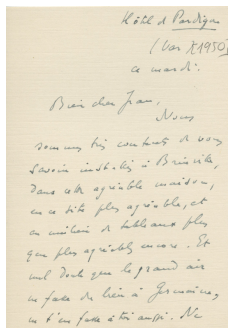 Hôtel de Pardigon
(Var) [1950]
ce mardi.
Bien cher Jean,
Nous
sommes très contents de vous
savoir installés à Brinville,
dans cette agréable maison,
en ce site plus agréable, et
au milieu de tableaux plus
que plus agréables encore. Et
nul doute que le grand air
ne fasse du bien à Germaine,
ne t'en fasse à toi aussi. Ne